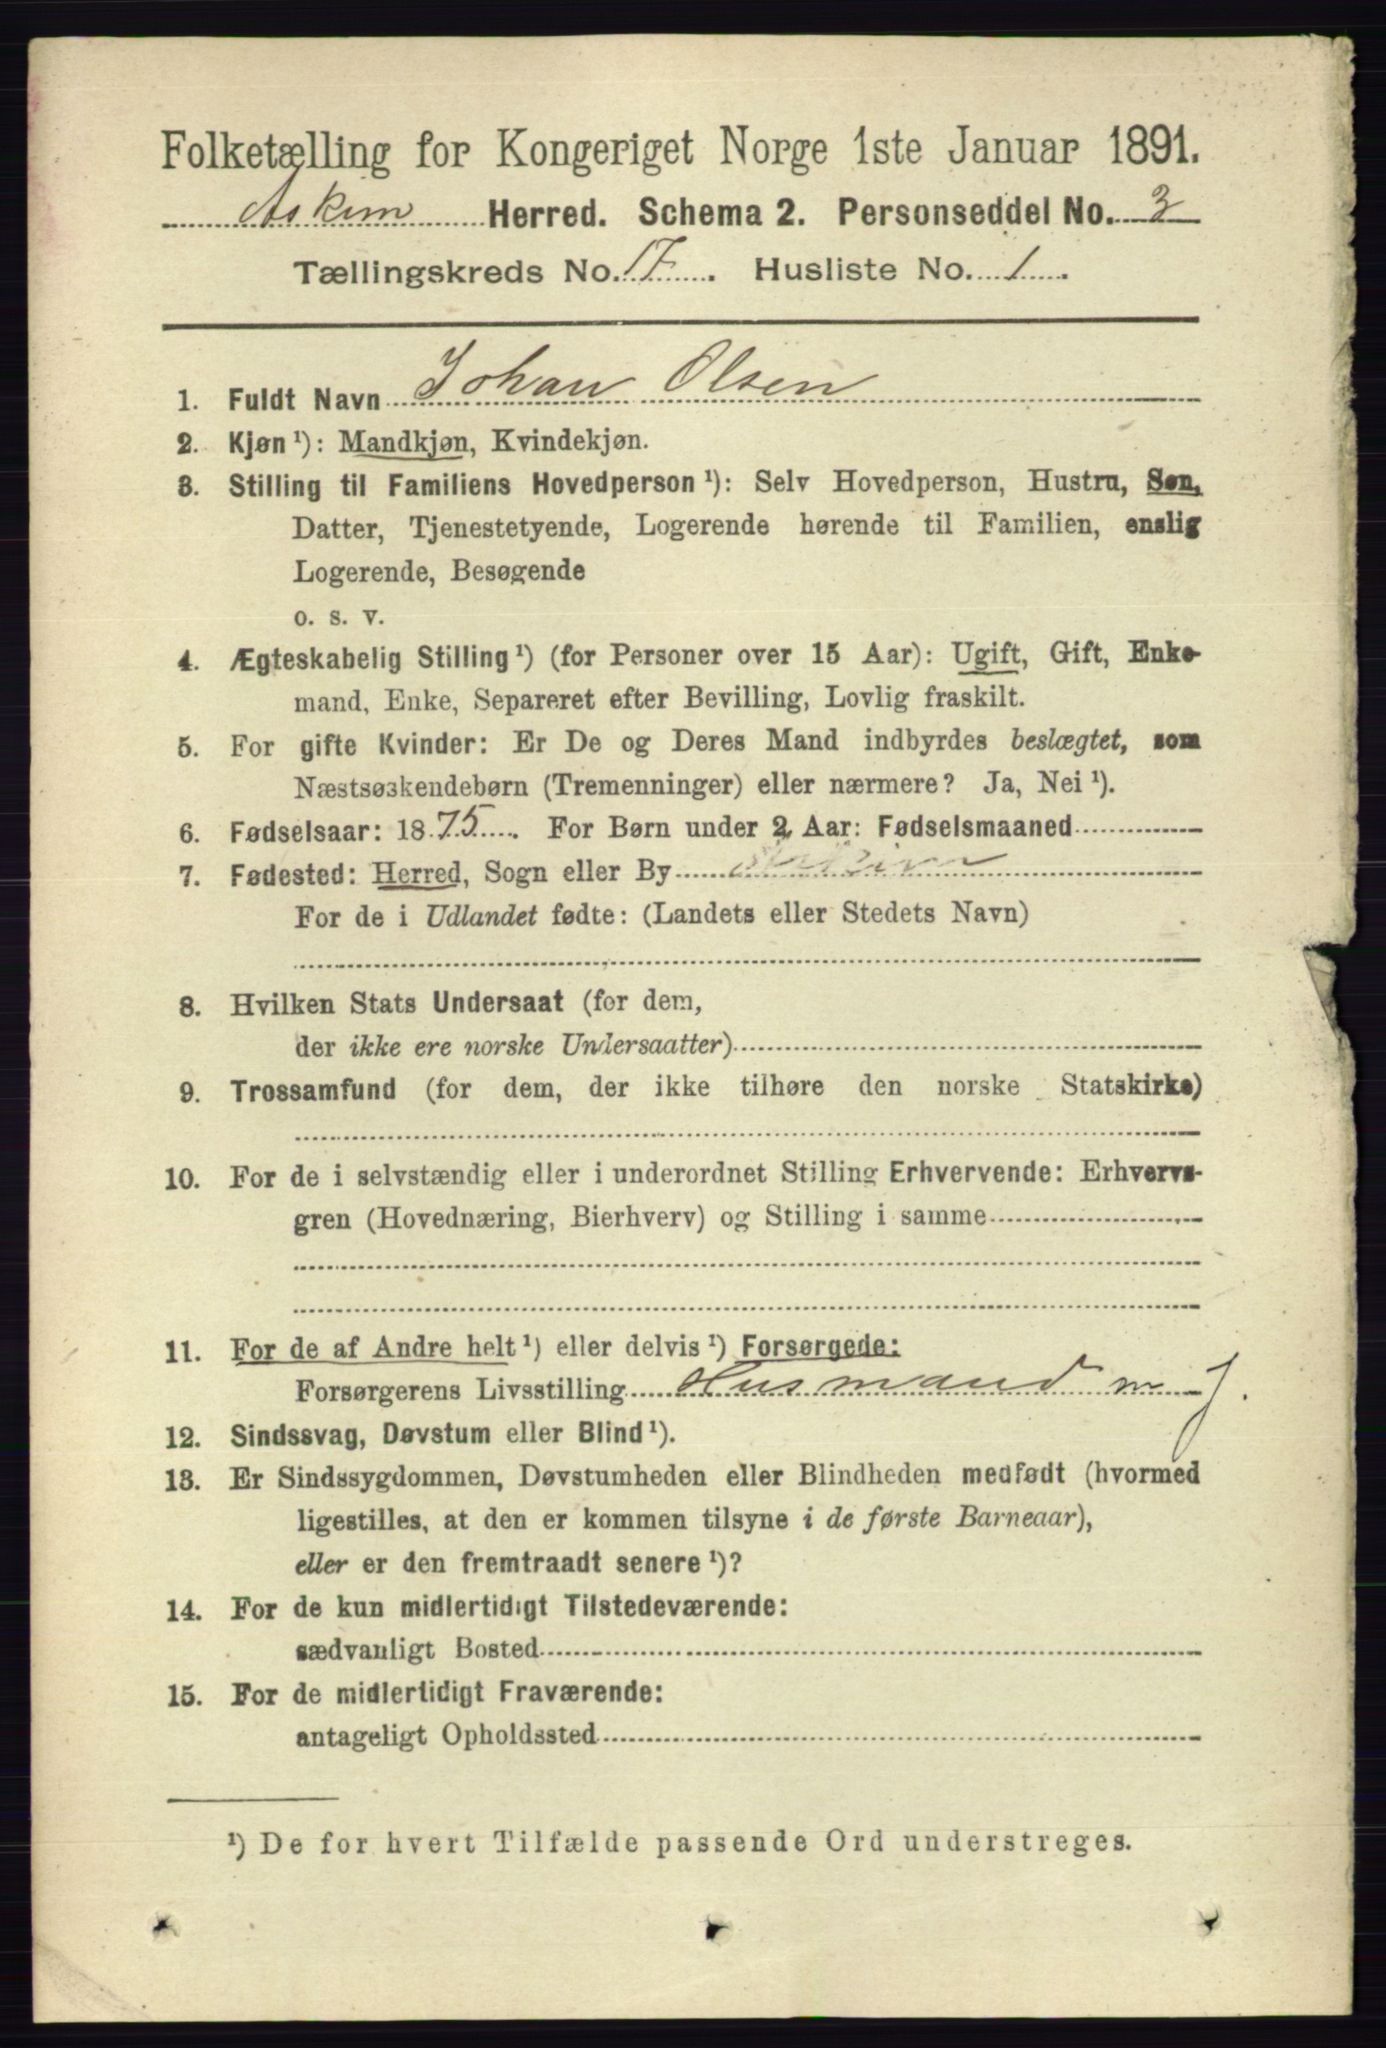 Folketælling for Kongeriget Norge 1ste Januar 1891.
Askim Herred. Schema 2. Personseddel No. 3
Tællingskreds No. 17. Husliste No. 1.
1. Fuldt Navn Johan Olsen
2. Kjøn ¹): Mandkjøn, Kvindekjøn.
3. Stilling til Familiens Hovedperson ¹): Selv Hovedperson, Hustru, Søn,
Datter, Tjenestetyende, Logerende hørende til Familien, enslig
Logerende, Besøgende
o. s. v.
4. Ægteskabelig Stilling ¹) (for Personer over 15 Aar): Ugift, Gift, Enke-
mand, Enke, Separeret efter Bevilling, Lovlig fraskilt.
5. For gifte Kvinder: Er De og Deres Mand indbyrdes beslægtet, som
Næstsøskendebørn (Tremenninger) eller nærmere? Ja, Nei ¹).
6. Fødselsaar: 1875. For Børn under 2 Aar: Fødselsmaaned
7. Fødested: Herred, Sogn eller By Askim
For de i Udlandet fødte: (Landets eller Stedets Navn)
8. Hvilken Stats Undersaat (for dem,
der ikke ere norske Undersaatter)
9. Trossamfund (for dem, der ikke tilhøre den norske Statskirke)
10. For de i selvstændig eller i underordnet Stilling Erhvervende: Erhvervs-
gren (Hovednæring, Bierhverv) og Stilling i samme
11. For de af Andre helt ¹) eller delvis ¹) Forsørgede:
Forsørgerens Livsstilling Husmand m J.
12. Sindssvag, Døvstum eller Blind ¹).
13. Er Sindssygdommen, Døvstumheden eller Blindheden medfødt (hvormed
ligestilles, at den er kommen tilsyne i de første Barneaar),
eller er den fremtraadt senere ¹)?
14. For de kun midlertidigt Tilstedeværende:
sædvanligt Bosted
15. For de midlertidigt Fraværende:
antageligt Opholdssted
¹) De for hvert Tilfælde passende Ord understreges.